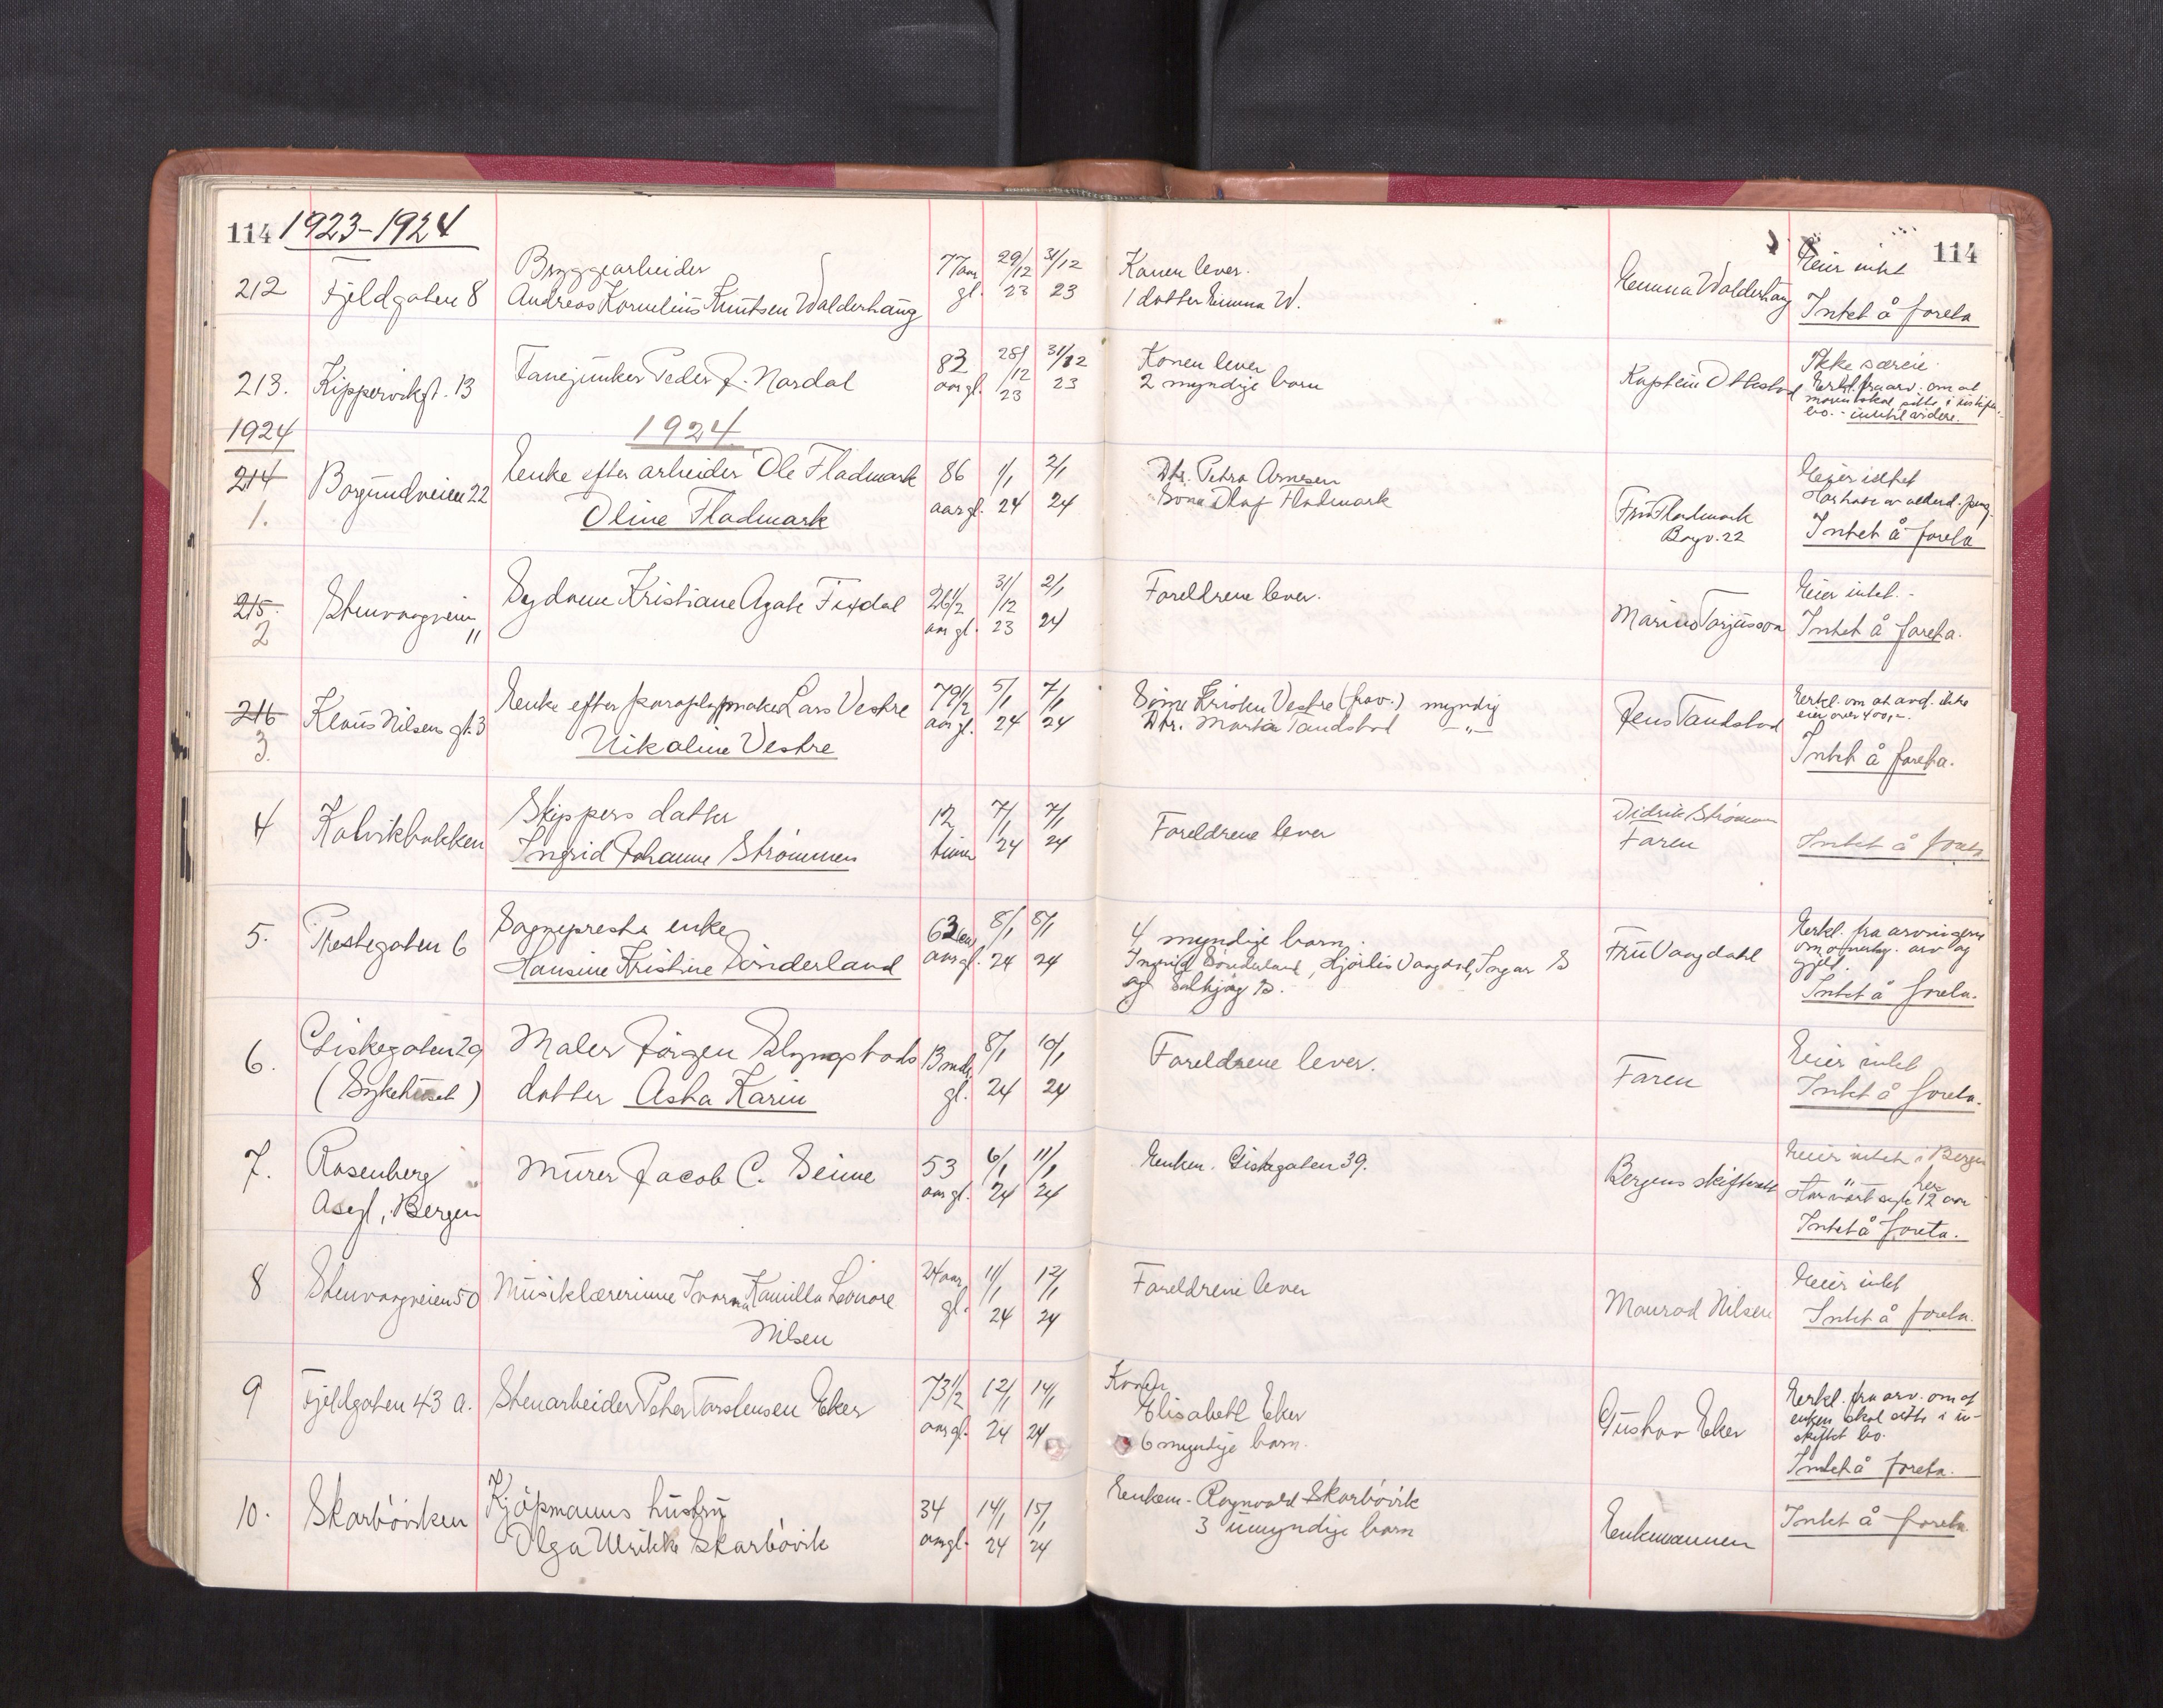 114 1923-1924
114
212 Fjeldgaten 8 Bryggearbeider 77 aar 29/12 31/12 Konen lever. Eier intet
Andreas Kornelius Knutsen Walderhaug gl. 23 23 1 datter Emma W. Emma Walderhaug Intet å foreta
213. Kippervikgt. 13 Fanejunker Peder J. Nordal 82 28/12 31/12 Konen lever Kaptein Ikke særeie.
aar gl. 23 23 2 myndige barn Erkl. fra arv. om at
moren skal sitte i uskiftet
bo. - inntil videre.
1924 1924
214 Borgundveien 22 Enke efter arbeider Ole Fladmark 86 1/1 2/1 Dtr. Petra Arnesen Eier intet
1. Oline Fladmark aar gl. 24 24 Sönn Olaf Fladmark Fru Fladmark
Borgv. 22 Intet å foreta
215. Stenvaagveien 11 Sydame Kristiane Agate Fixdal 26 1/2 31/12 2/1 Foreldrene lever. Eier intet. -
2 aar gl. 23 24 Marius Torjusson Intet å foreta.
216 Klaus Nilsens gt. 3 Enke efter paraplymaker Lars Vestre 79 1/2 5/1 7/1 Sönn Kristen Vestre (frav.) myndig Jens Tandstad Erkl. om at avd. ikke
3. Nikoline Vestre aar gl. 24 24 Dtr. Marta Tandstad -"- eier over 400,-.
Intet å foreta.
4 Kolvikbakken Skippers datter 12 7/1 7/1 Foreldrene lever Didrik Strömmen
Ingrid Johanne Strömmen timer 24 24 Faren Intet å foreta
5. Prestegaten 6 Sogneprests enke 62 8/1 8/1 4 myndige barn. Fru Vaagdahl Erkl. fra arvingene
Hansine Kristine Sönderland aar gl. 24 24 Ingrid Sönderland, Hjördis Vaagdal, Ingar S om overtag. arv og
og Solbjörg S. gjeld.
Intet å foreta.
6. Giskegaten 29 Maler Jörgen Slyngstads 13 mdr. 8/1 10/1 Foreldrene lever. Eier intet
(Sykehuset) datter Asta Karin gl. 24 24 Faren Intet å foreta.
7. Rosenberg Murer Jacob C. Seime 53 6/1 11/1 Enken. Giskegaten 39. Bergens skifterett Eier intet i Bergen
Asyl, Bergen aar gl. 24 24 " her
Har vært syk 12 aar
Intet å foreta.
8 Stenvaagveien 50 Musiklærerinne Ivarna Kamilla Leonore 24 aar 11/1 12/1 Foreldrene lever Eier intet
Nilsen gl. 24 24 Monrad Nilsen Intet å foreta.
9 Fjeldgaten 43 a. Stenarbeider Peter Torstensen Eker 73 1/2 12/1 14/1 Konen Erkl. fra arv. om at
aar gl. 24 24 Elisabeth Eker Gustav Eker enken skal sitte i u-
6 myndige barn. skiftet bo.
Intet å foreta.
10. Skarböviken Kjöpmanns hustru 34 14/1 15/1 Enkem. Ragnvald Skarbövik Intet å foreta
Olga Ulrikke Skarbövik aar gl. 24 24 3 umyndige barn Enkemannen